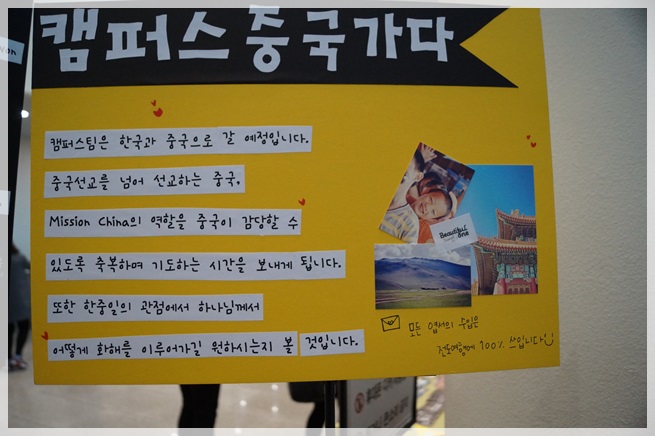 캠퍼스 중국가다
캠퍼스팀은 한국과 중국으로 갈 예정입니다.
중국선교를 넘어 선교하는 중국,
Mission China의 역할을 중국이 감당할 수
있도록 축복하며 기도하는 시간을 보내게 됩니다.
또한 한중일의 관점에서 하나님께서
어떻게 화해를 이루어가길 원하시는지 볼 것입니다.
Beautiful
one
모든 엽서의 수입은
전도여행에 100% 쓰입니다